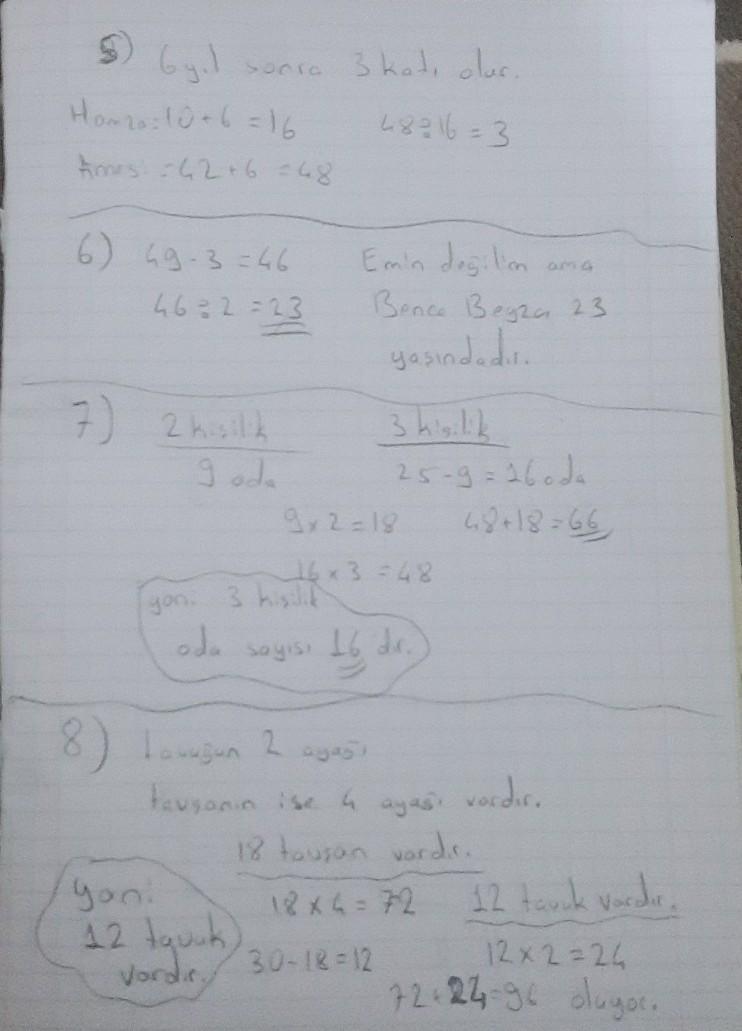 5) 6 yıl sonra 3 katı olur.
Hamza: 10 + 6 = 16 48 ÷ 16 = 3
Annesi: = 42 + 6 = 48
6) 49 - 3 = 46 Emin değilim ama
46 ÷ 2 = 23 Bence Beyza 23
yaşındadır.
7) 2 kişilik 3 kişilik
9 oda 25 - 9 = 16 oda
9 x 2 = 18 48 + 18 = 66
16 x 3 = 48
yani 3 kişilik
oda sayısı 16 dır.
8) tavuğun 2 ayağı
tavşanın ise 4 ayağı vardır.
18 tavşan vardır.
18 x 4 = 72 12 tavuk vardır.
30 - 18 = 12 12 x 2 = 24
72 + 24 = 96 oluyor.
yani
12 tavuk
vardır.